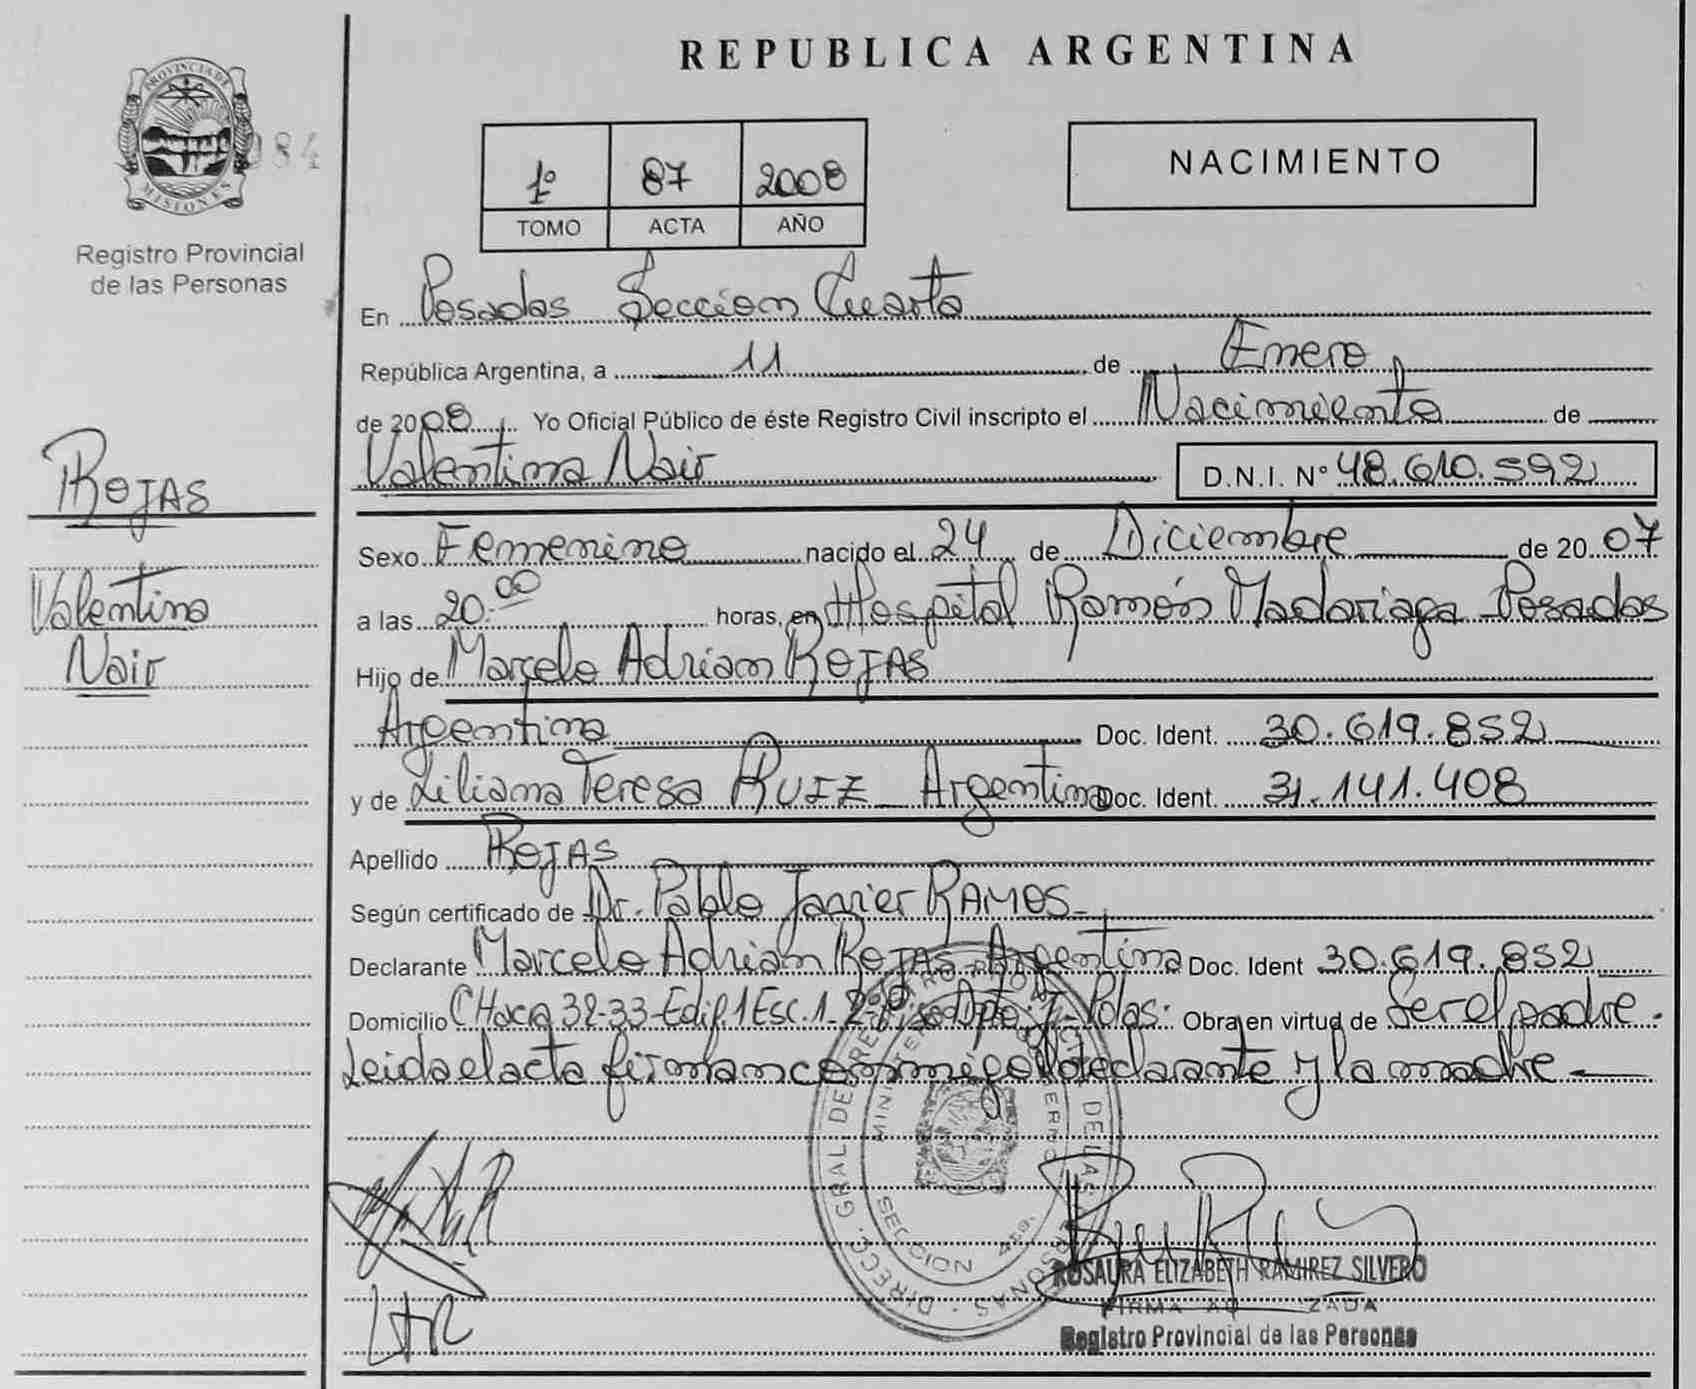 REPUBLICA ARGENTINA
PROVINCIA DE
MISIONES
84
Registro Provincial
de las Personas
1º 87 2008
TOMO ACTA AÑO
NACIMIENTO
En Posadas Seccion Cuarta
República Argentina, a 11 de Enero
de 2008 Yo Oficial Público de éste Registro Civil inscripto el Nacimiento de
Valentina Nair D.N.I. Nº 48.610.592
ROJAS
Valentina
Nair
Sexo Femenino nacido el 24 de Diciembre de 2007
a las 20:00 horas, en Hospital Ramón Madariaga - Posadas
Hijo de Marcelo Adrian ROJAS
Argentina Doc. Ident. 30.619.852
y de Liliana Teresa RUIZ - Argentina Doc. Ident. 31.141.408
Apellido ROJAS
Según certificado de Dr. Pablo Javier RAMOS-
Declarante Marcelo Adrian ROJAS Argentina Doc. Ident 30.619.852
Domicilio CHacra 32-33-Edif.1 Esc.1-2º Piso Dpto: Obra en virtud de Ser el padre.
Leida el acta firman conmigo el declarante y la madre -
DIRECC. GRAL DE REGISTRO PROV. DE LAS PERSONAS
SECCION 4ta.
ROSAURA ELIZABETH RAMIREZ SILVERO
Registro Provincial de las Personas